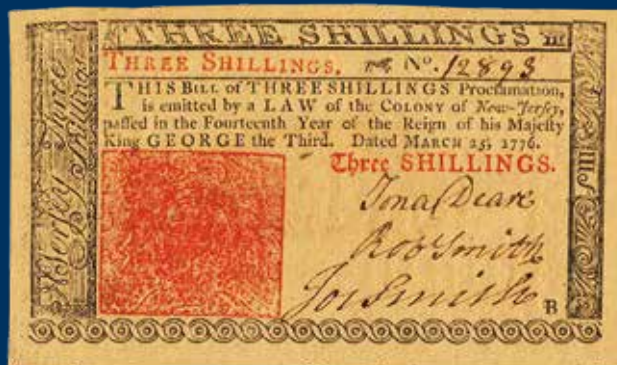 THREE SHILLINGS III
THREE SHILLINGS. No. 12893
THIS BILL of THREE SHILLINGS Proclamation,
is emitted by a LAW of the COLONY of New-Jerſey,
paſſed in the Fourteenth Year of the Reign of his Majeſty
King GEORGE the Third. Dated MARCH 25, 1776.
Three SHILLINGS.
Jona Deare
Rob Smith
Jos Smith
B
N Jerſey Three
Shillings
III